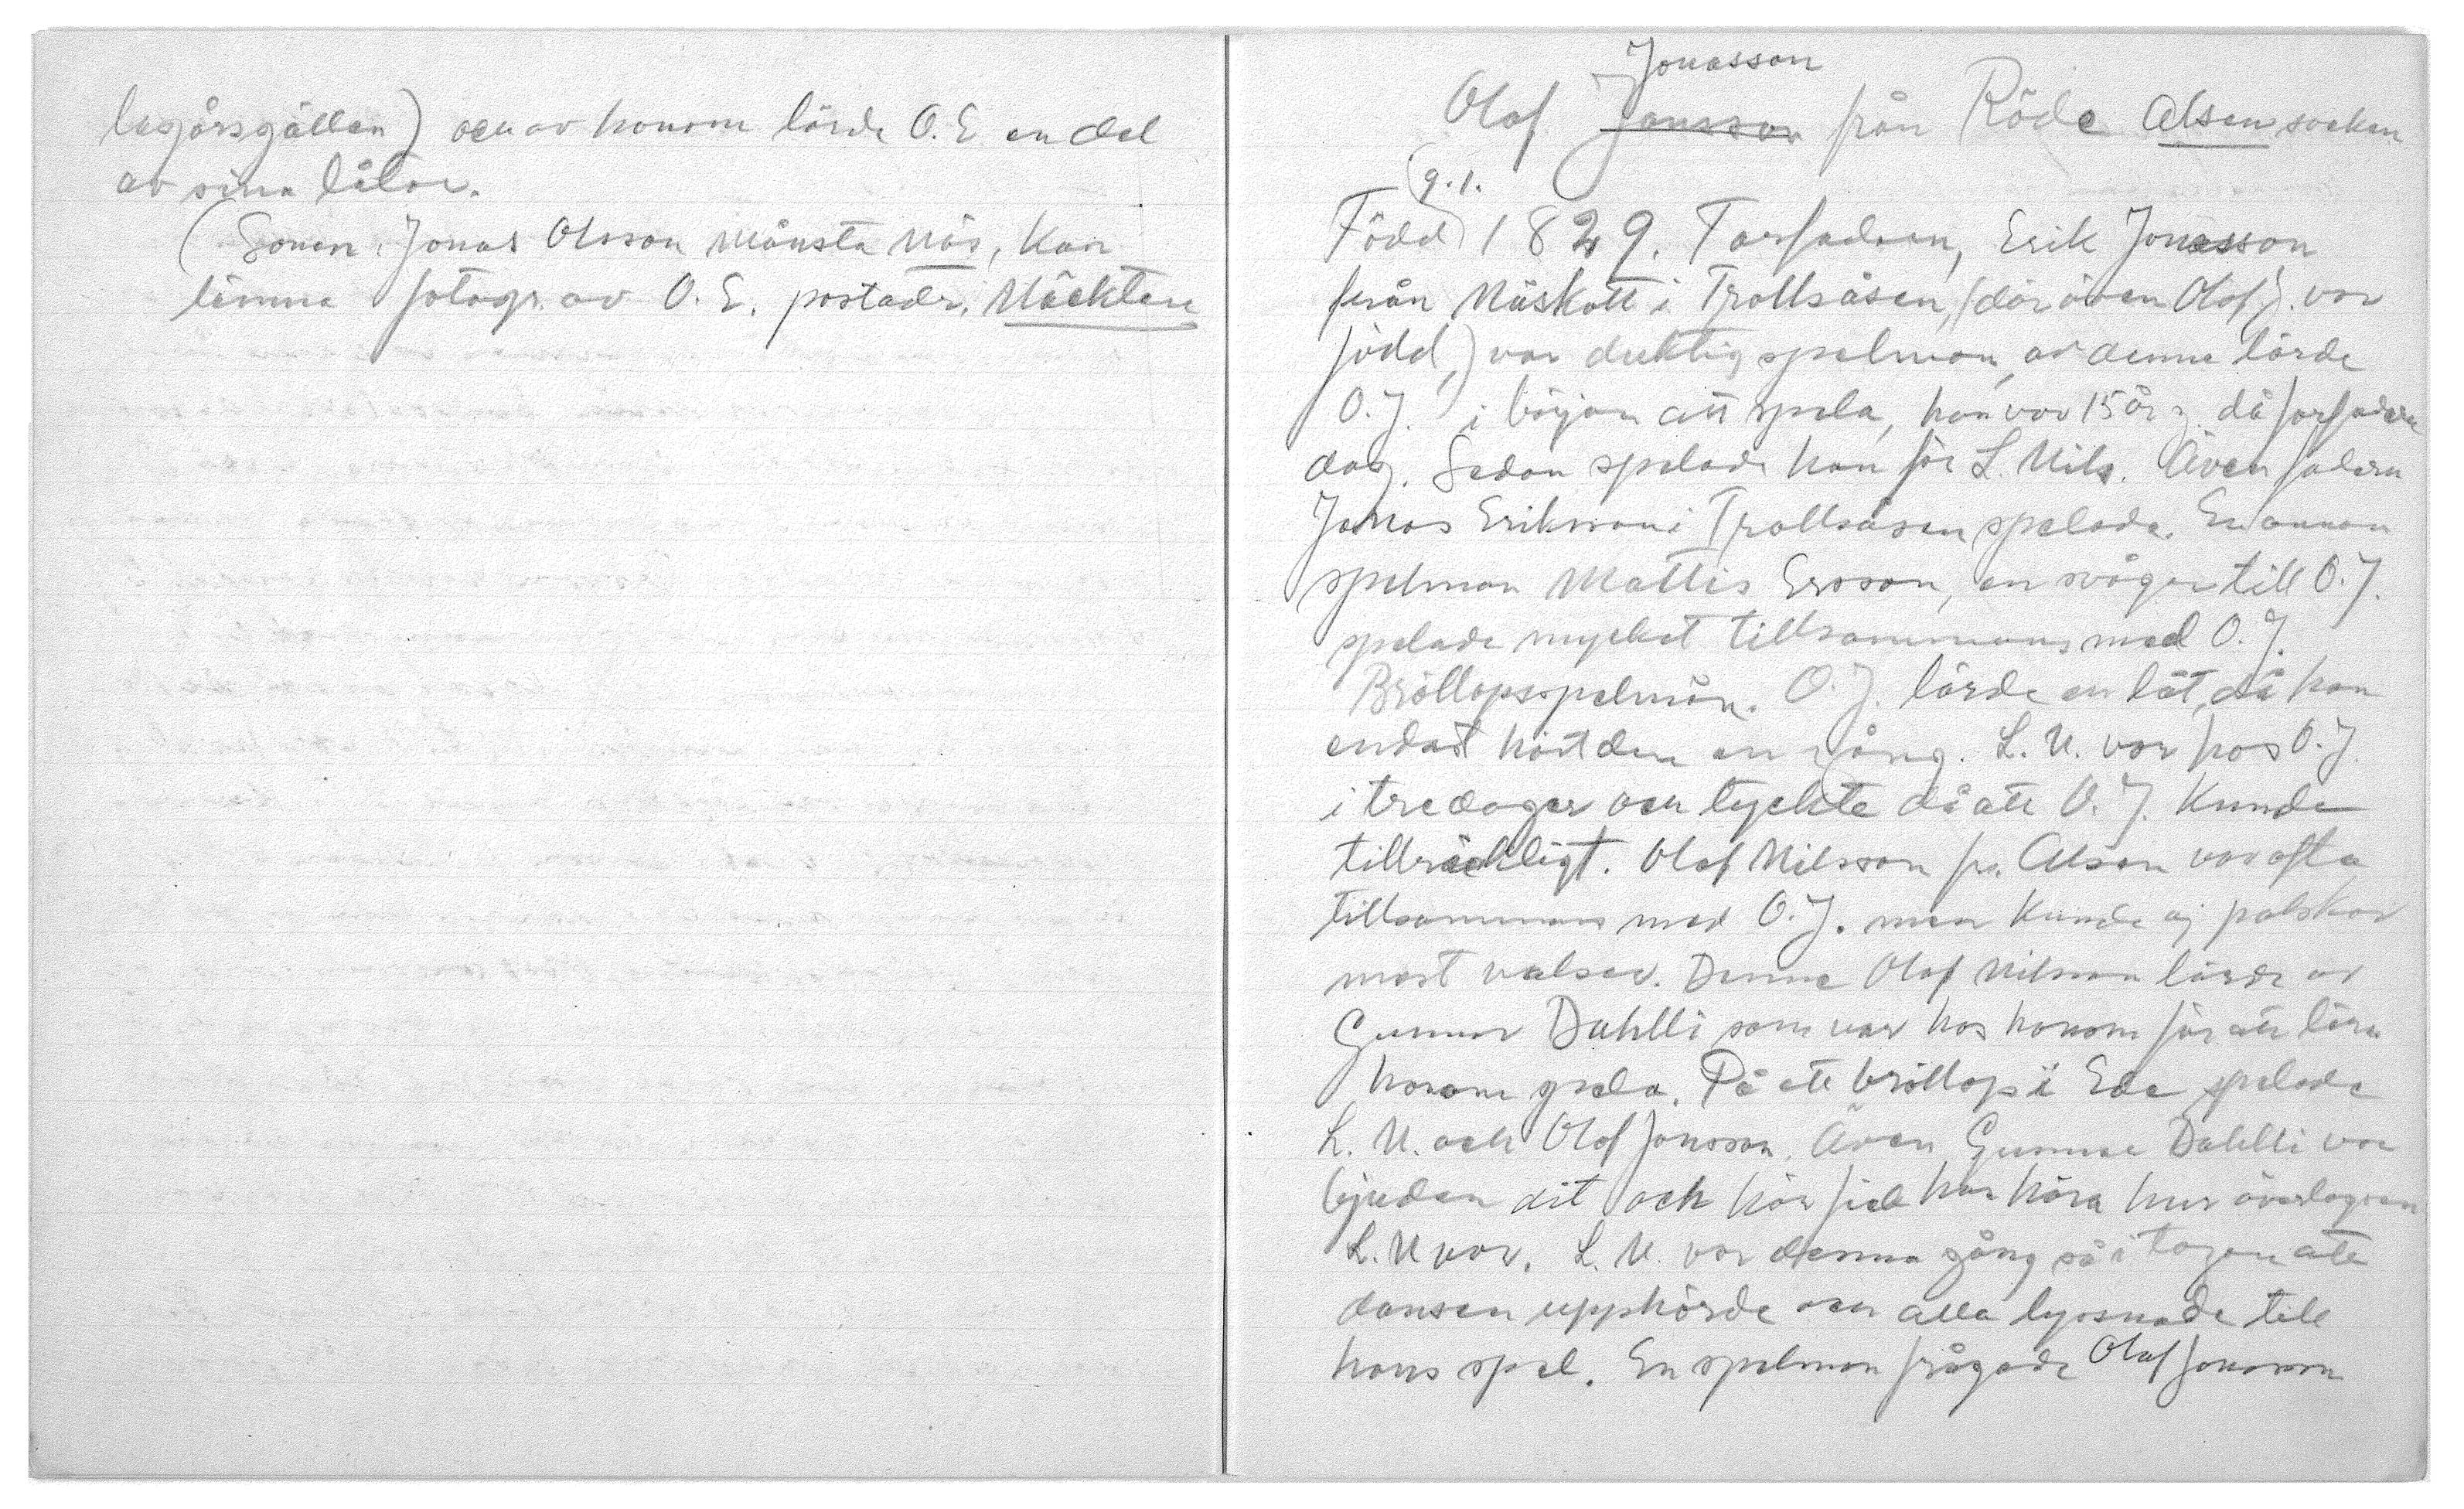 lagårsgällen) och av honom lärde O. E en del
av sina låtar.
(Sonen Jonas Olsson Månsta Näs, kan
lämna fotogr. av O. E. postadr. Näckten
Jonasson
Olof Jonsson från Röde Alsen socken
(g.1.
Född 1829. Farfadern, Erik Jonasson
från Näskott i Trollsåsen, (där även Olof J. var
född,) var duktig spelman, av denne lärde
O. J. i början att spela, han var 15 år g. då farfadern
dog. Sedan spelade han för L. Nils. Även fadern
Jonas Eriksson i Trollsåsen spelade. En annan
spelman Mattis Ersson, en svåger till O. J.
spelade mycket tillsammans med O. J.
Bröllopsspelmän. O. J. lärde en låt, då han
endast hört den en gång. L. N. var hos O. J.
i tre dagar och tyckte då att O. J. kunde
tillräckligt. Olof Nilsson fr. Alsen var ofta
tillsammans med O. J. men kunde ej polskor
mest valser. Denne Olof Nilsson lärde av
Gunnar Dahlli som var hos honom för att lära
honom spela. På ett bröllop i Ede spelade
L. N. och Olof Jonsson. Även Gunnar Dahlli var
bjuden dit och här fick han höra hur överlägsen
L. N var. L. N. var denna gång så i tagen att
dansen upphörde och alla lyssnade till
hans spel. En spelman frågade Olof Jonasson